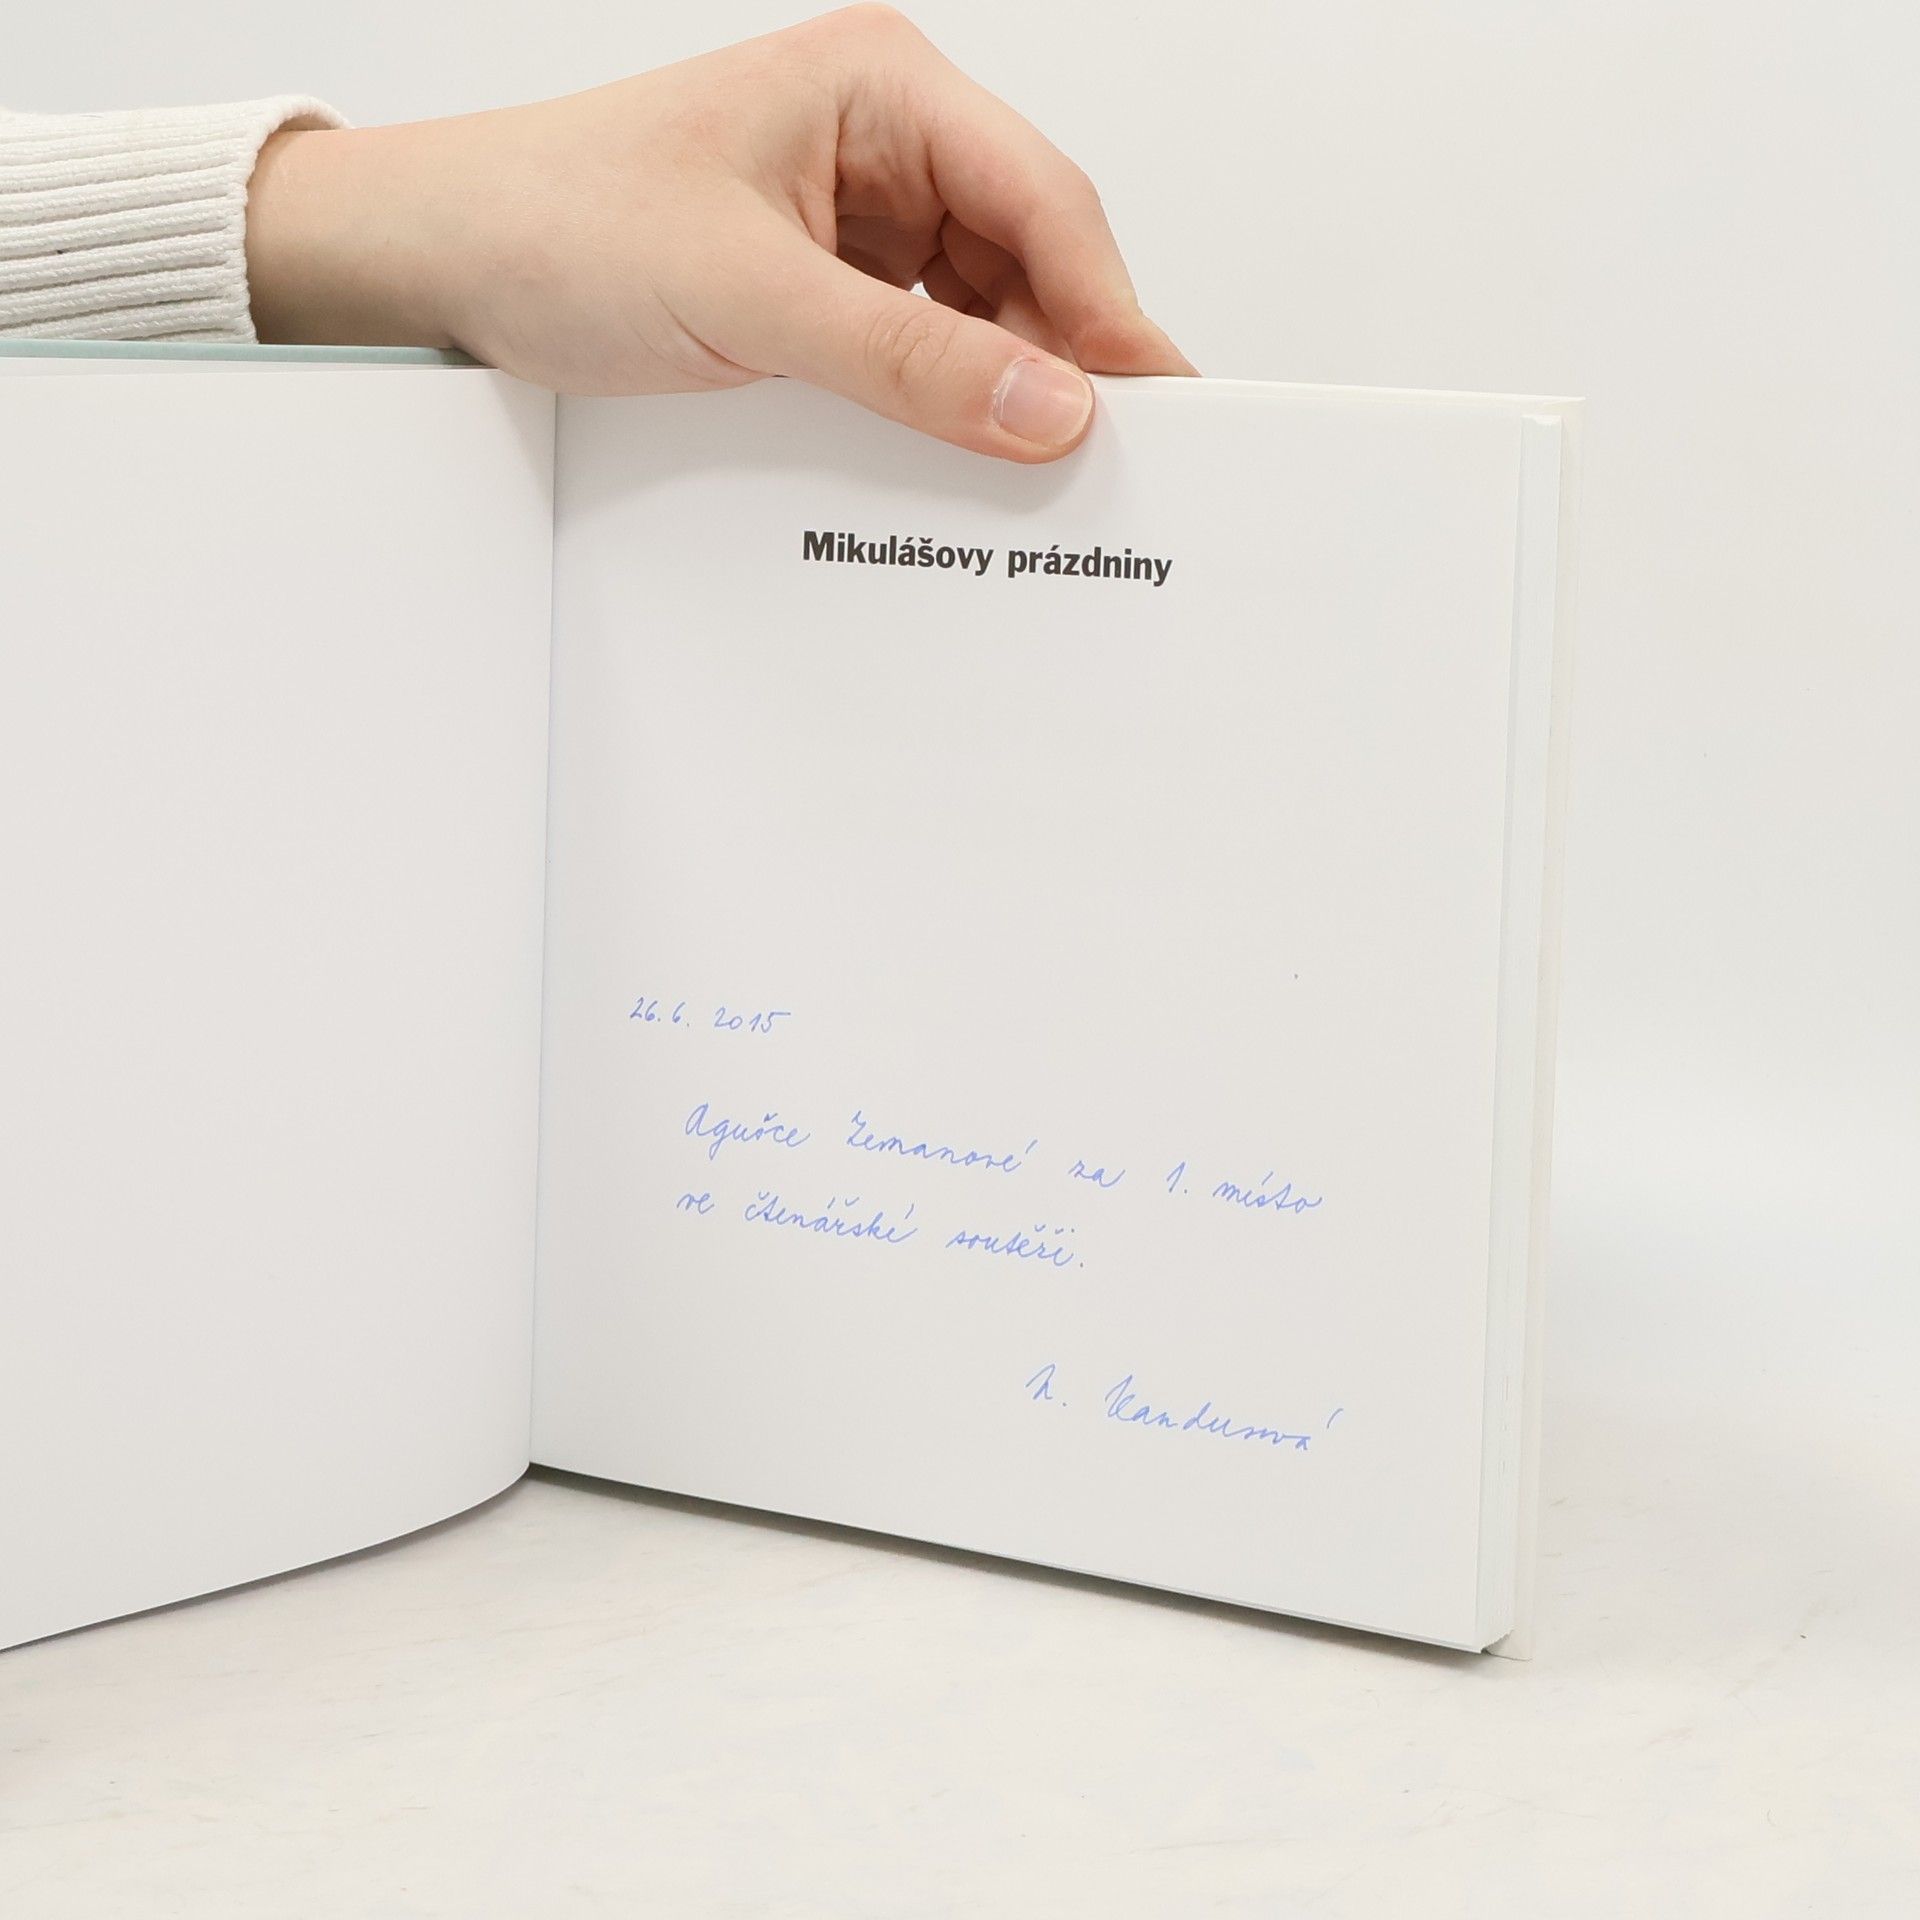 Mikulášovy prázdniny
26. 6. 2015
Agušce Zemanové za 1. místo
ve čtenářské soutěži.
Kandusová